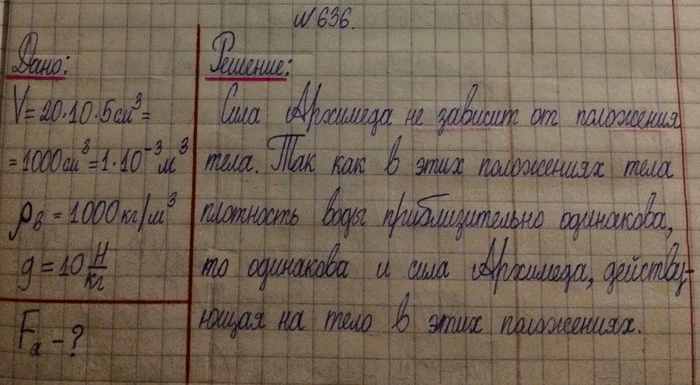 №636.
Дано:
V=20·10·5см³=
=1000см³=1·10⁻³м³
ρв=1000кг/м³
g=10 Н/кг
Fa-?
Решение:
Сила Архимеда не зависит от положения
тела. Так как в этих положениях тела
плотность воды приблизительно одинакова,
то одинакова и сила Архимеда, действу-
ющая на тело в этих положениях.